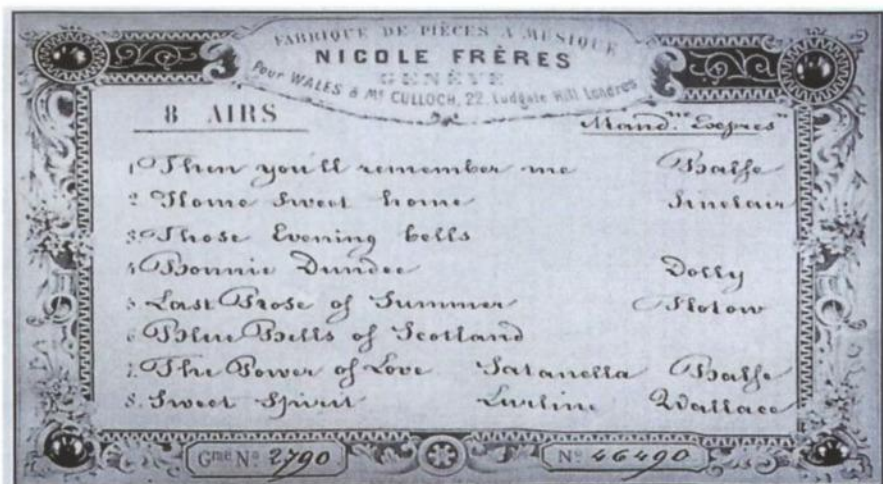 FABRIQUE DE PIÈCES A MUSIQUE
NICOLE FRÈRES
GENÈVE
Pour WALES & Mc CULLOCH, 22, Ludgate Hill Londres
8 AIRS
Mand.ne Expres.ve
1. Then you'll remember me Balfe
2. Home Sweet home Sinclair
3. Those Evening bells
4. Bonnie Dundee Dolly
5. Last Rose of Summer Flotow
6. Blue Bells of Scotland
7. The Power of Love Satanella Balfe
8. Sweet Spirit Lurline Wallace
Gme No. 2790
No. 46490